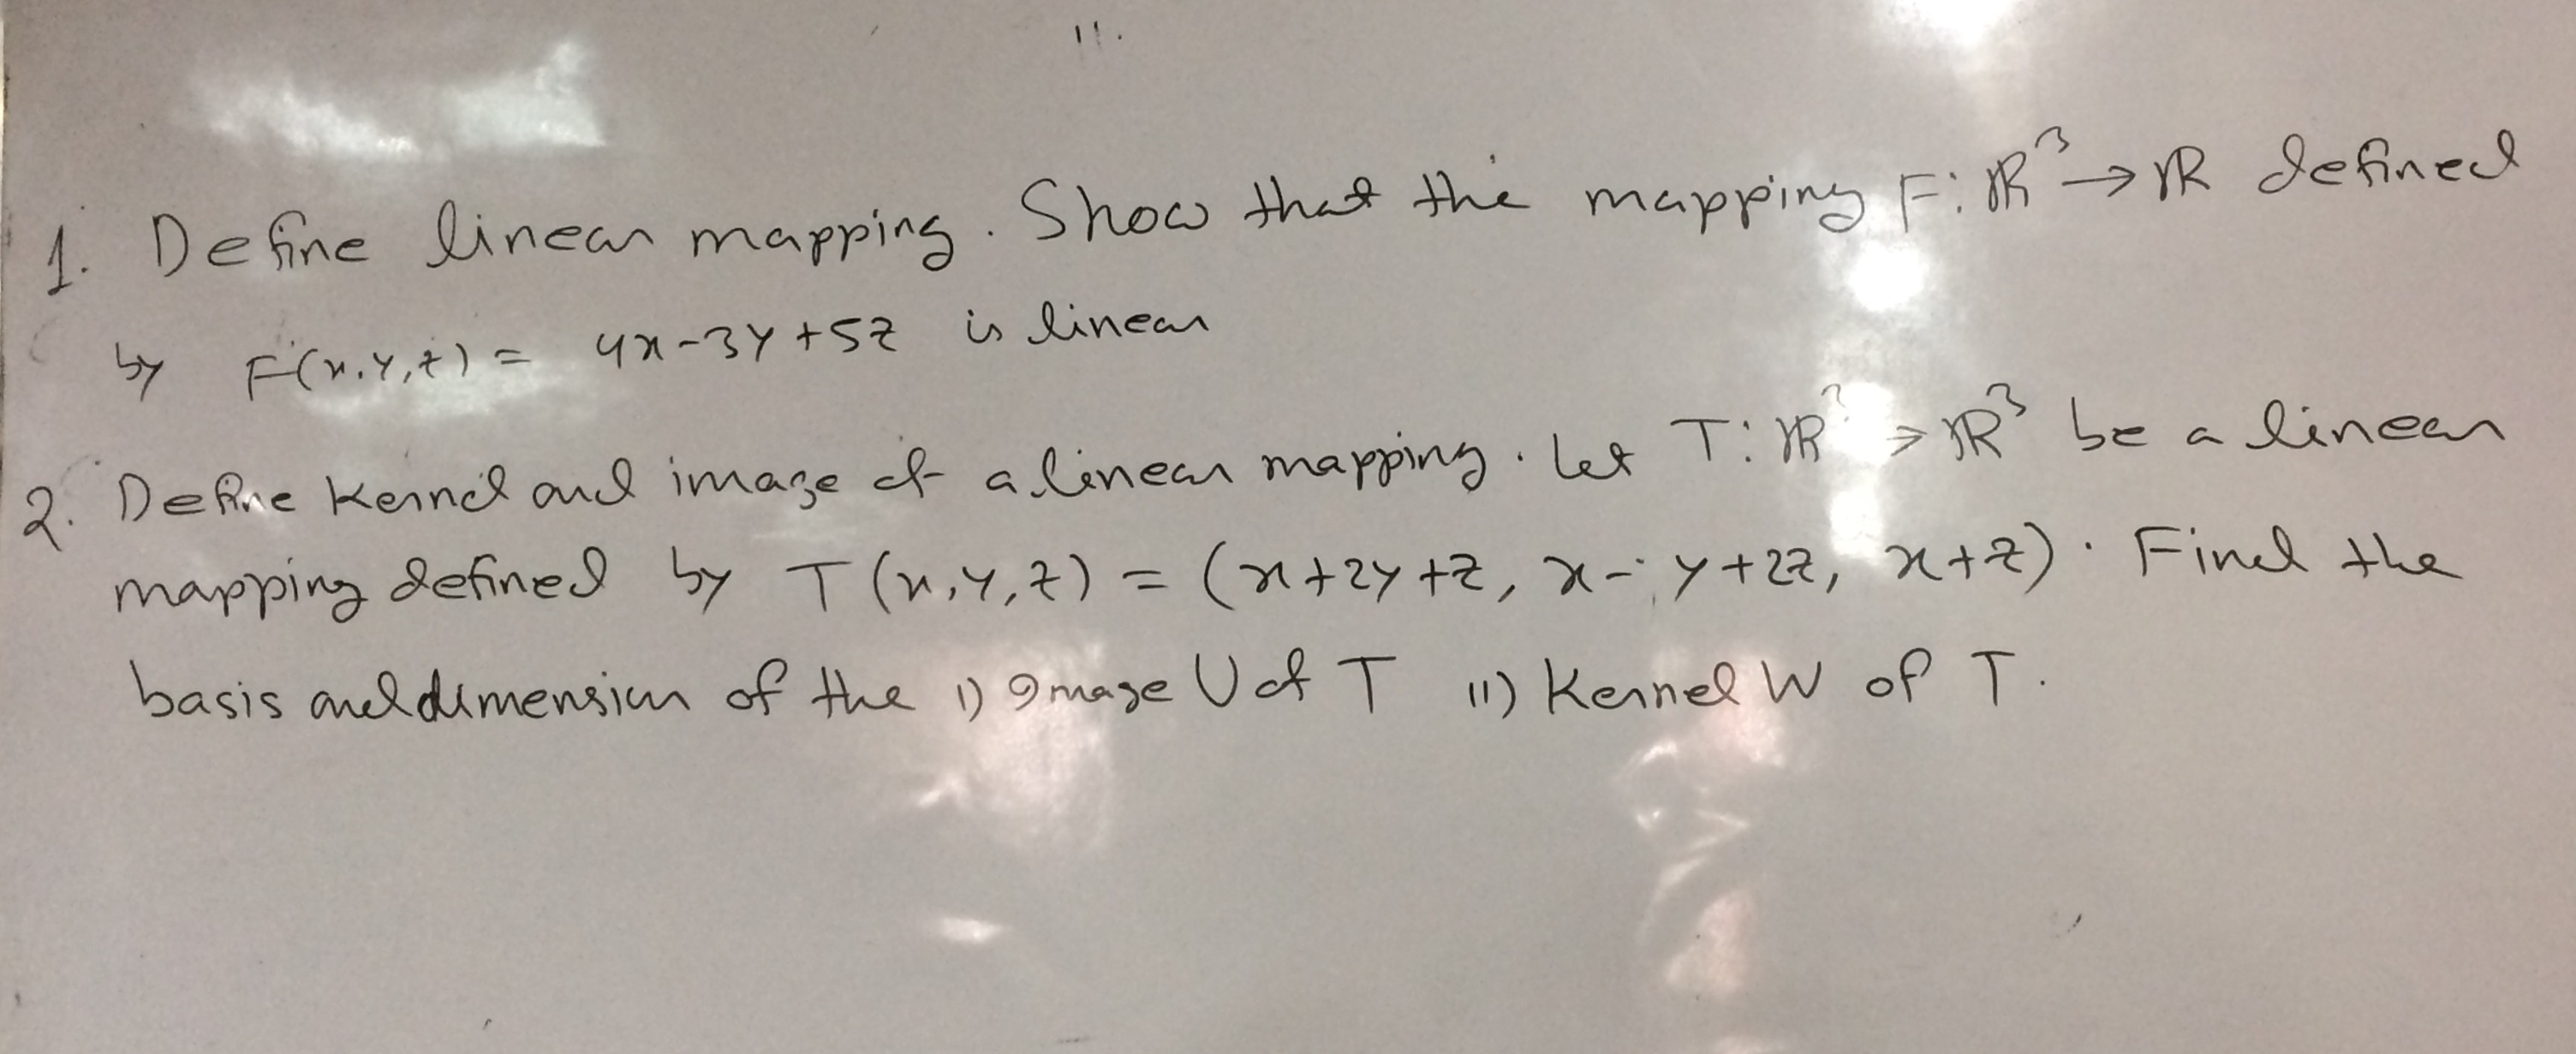 11.
1. Define linear mapping. Show that the mapping F: ℝ³ → ℝ defined
by F(x,y,z) = 4x-3y+5z is linear
2. Define Kernel and image of a linear mapping. Let T: ℝ³ → ℝ³ be a linear
mapping defined by T(x,y,z) = (x+2y+z, x-y+2z, x+z). Find the
basis and dimension of the i) Image U of T ii) Kernel W of T.